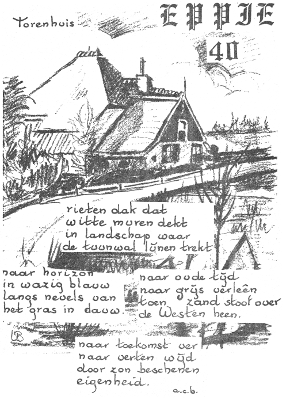 Torenhuis
EPPIE
40
rieten dak dat
witte muren dekt
in landschap waar
de tuunwal lijnen trekt
naar horizon
in wazig blauw
langs nevels van
het gras in dauw.
naar oude tijd
naar grijs verleên
toen zand stoof over
de Westen heen.
naar toekomst ver
naar verten wijd
door zon beschenen
eigenheid.
a.c.b.